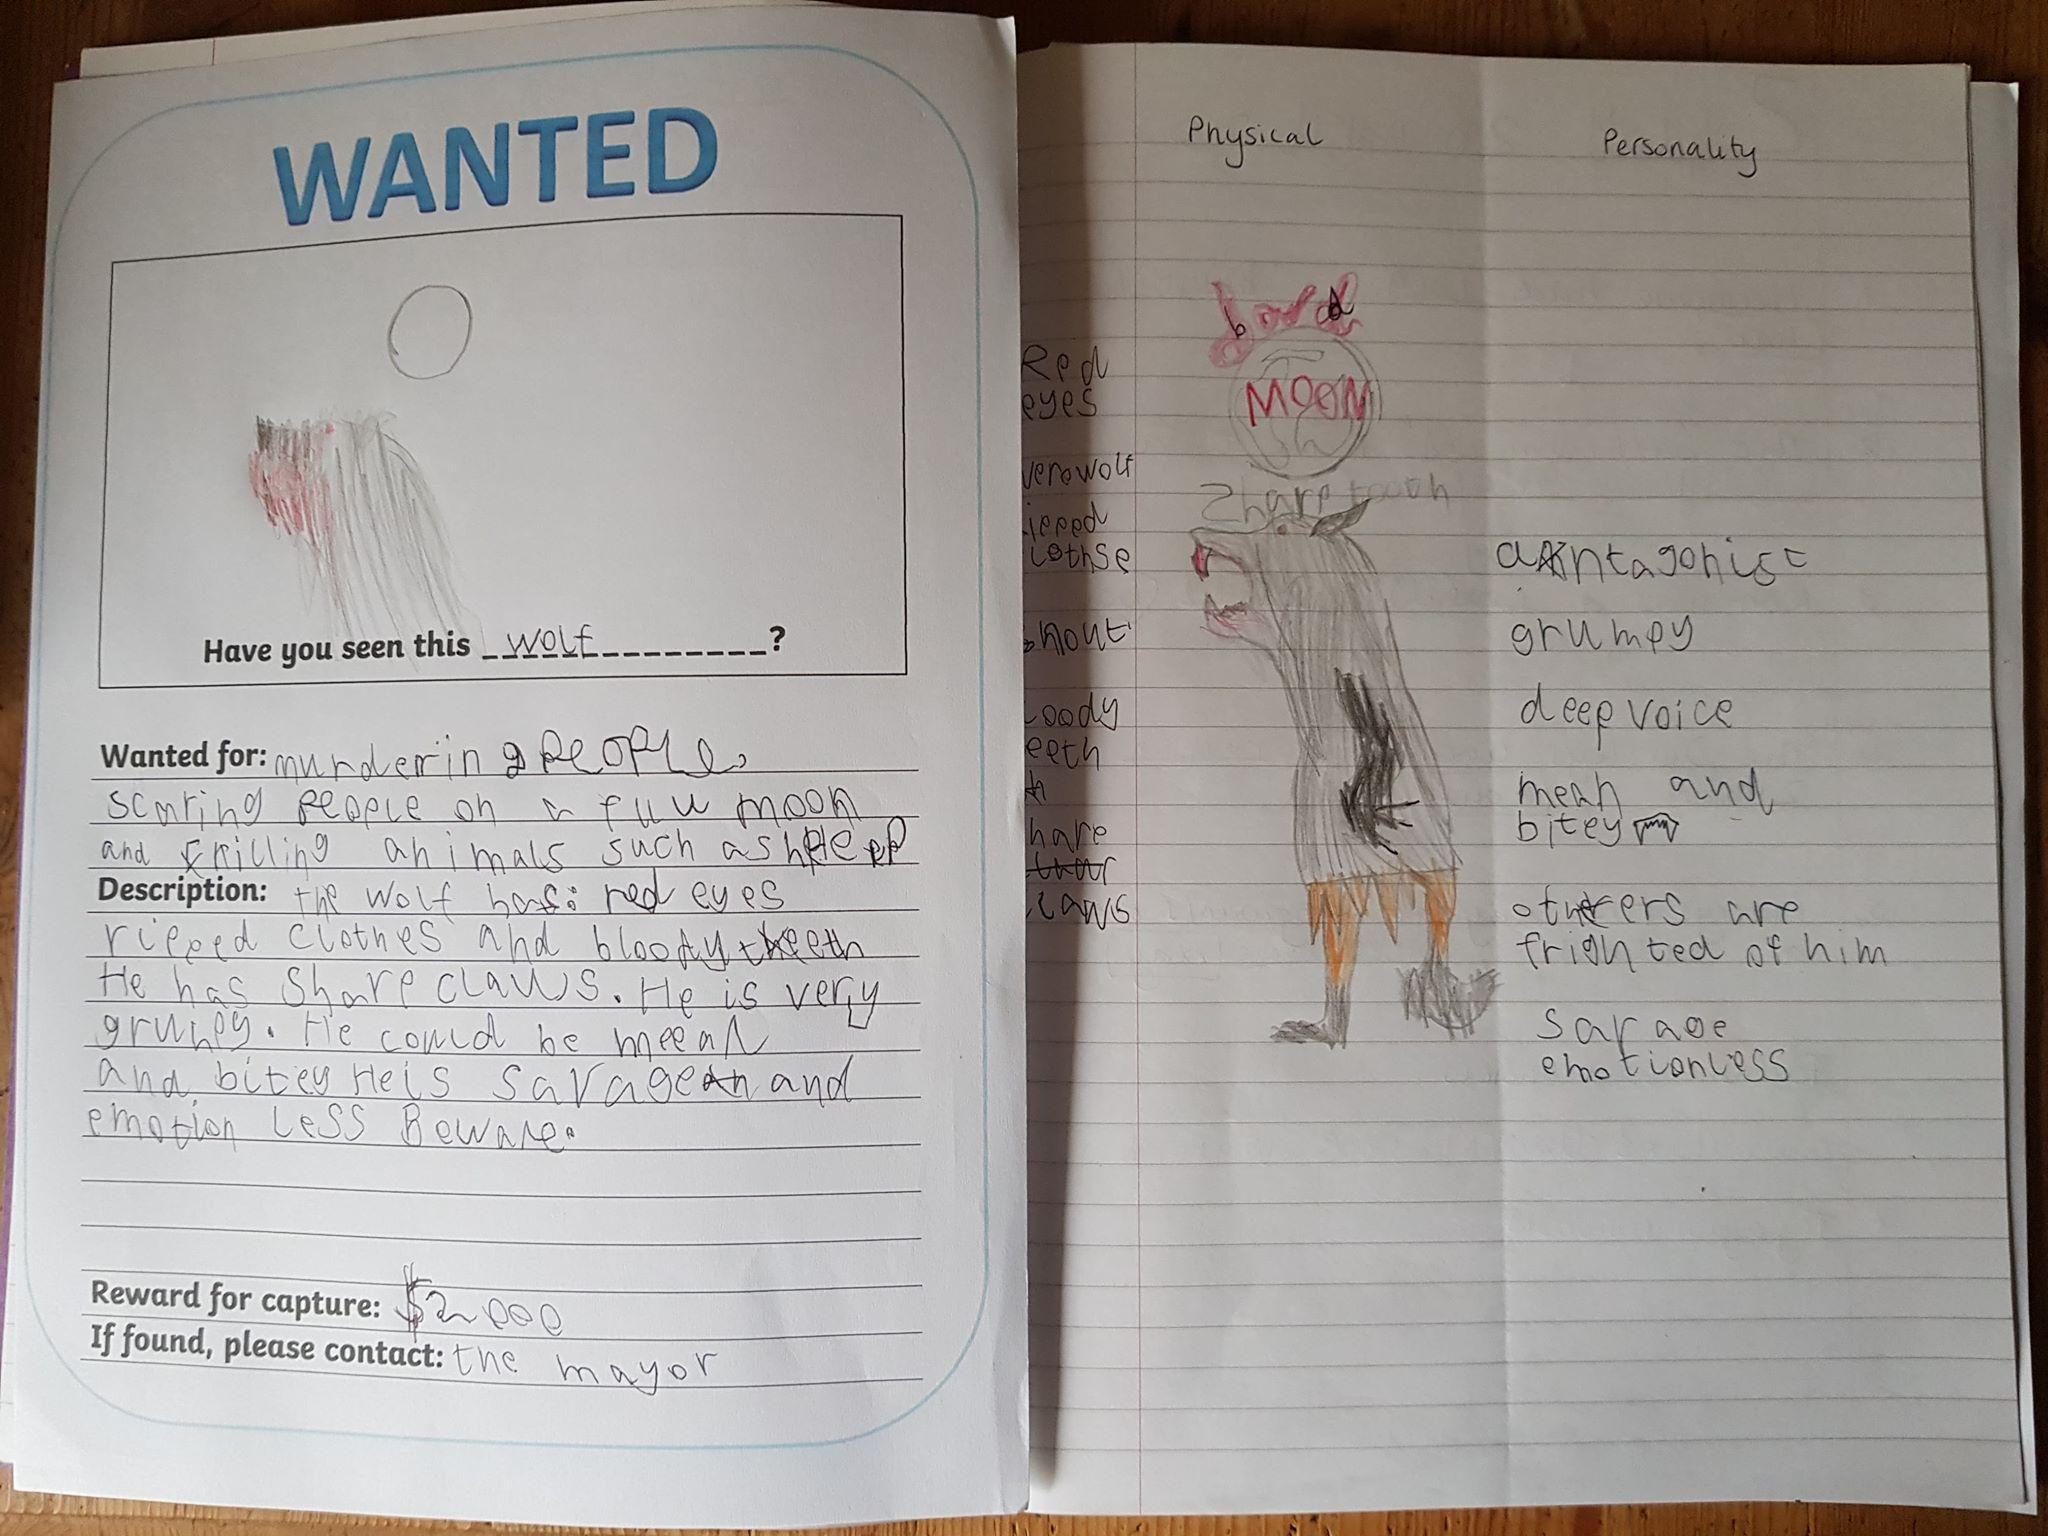 WANTED
Have you seen this wolf ?
Wanted for: murdering people,
scaring people on a full moon
and killing animals such as sheep
Description: the wolf has: red eyes
ripped clothes and bloody teeth
He has sharp claws. He is very
grumpy. He could be meean
and bitey He is savage and
emotion less Beware.
Reward for capture: $2000
If found, please contact: the mayor
Physical
Personality
MOON
Red
eyes
werewolf
ripped
clothse
Sharp tooth
antagonist
grumpy
deep voice
mean and
bitey
others are
frighted of him
savage
emotionless
oody
eeth
harp
claws